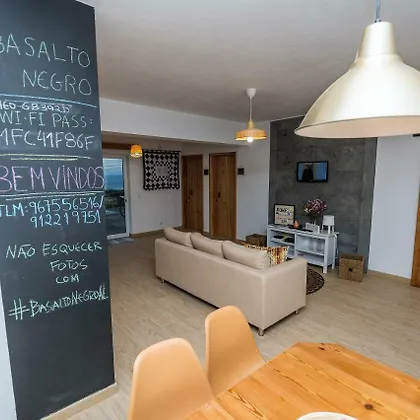 BASALTO
NEGRO
MEO-6B392D
WI-FI PASS:
1FC41F86F
BEM VINDOS
TLM: 967556516/
912219751
NÃO ESQUECER
FOTOS
COM
#BASALTONEGROAL